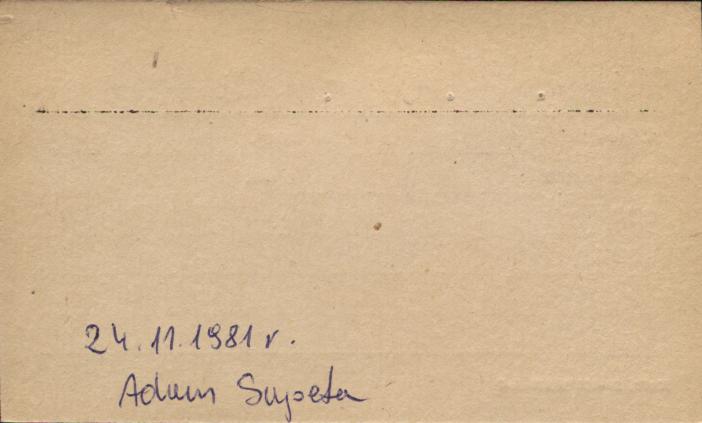 24.11.1981 r.
Adam Supeta